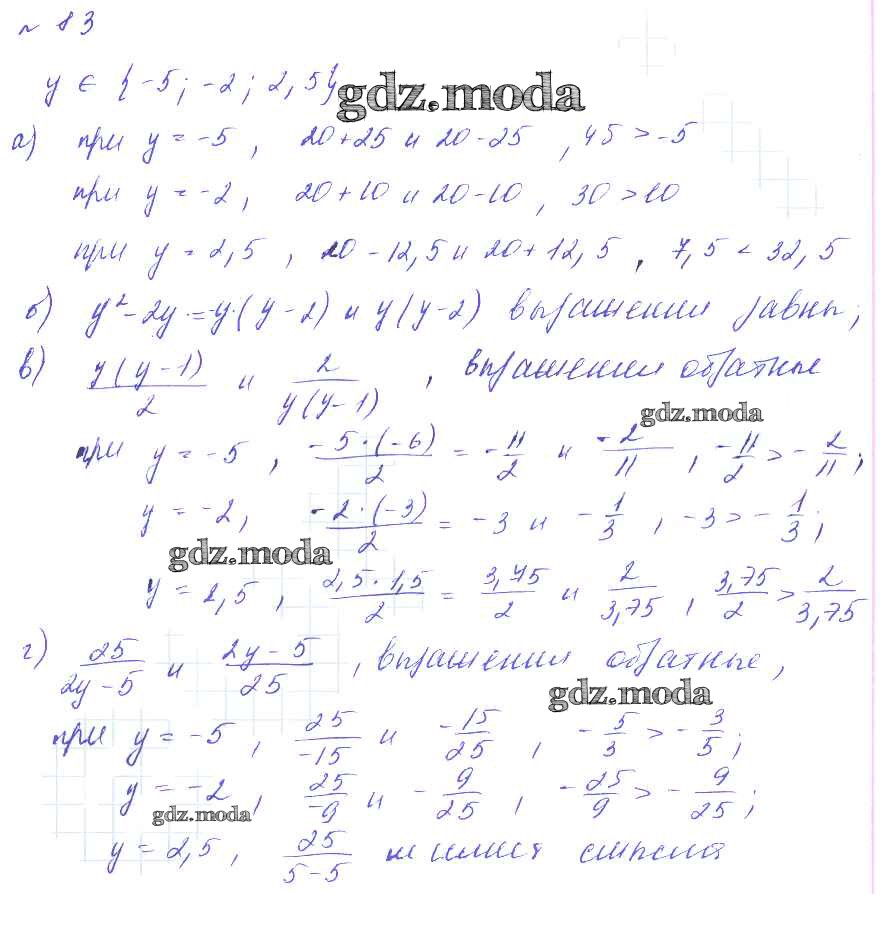 № 83
y ∈ {-5; -2; 2,5} gdz.moda
а) при y = -5, 20+25 и 20-25, 45 > -5
при y = -2, 20+10 и 20-10, 30 > 10
при y = 2,5, 20-12,5 и 20+12,5, 7,5 < 32,5
б) y²-2y = y·(y-2) и y(y-2) выражения равны;
в) y(y-1)/2 и 2/y(y-1), выражения обратные
gdz.moda
при y = -5, -5·(-6)/2 = -11/2 и -2/11, -11/2 > -2/11;
y = -2, -2·(-3)/2 = -3 и -1/3, -3 > -1/3;
gdz.moda
y = 2,5, 2,5·1,5/2 = 3,75/2 и 2/3,75, 3,75/2 > 2/3,75
г) 25/2y-5 и 2y-5/25, выражения обратные,
gdz.moda
при y = -5, 25/-15 и -15/25, -5/3 > -3/5;
y = -2, 25/-9 и -9/25, -25/9 > -9/25;
gdz.moda
y = 2,5, 25/5-5 не имеет смысла